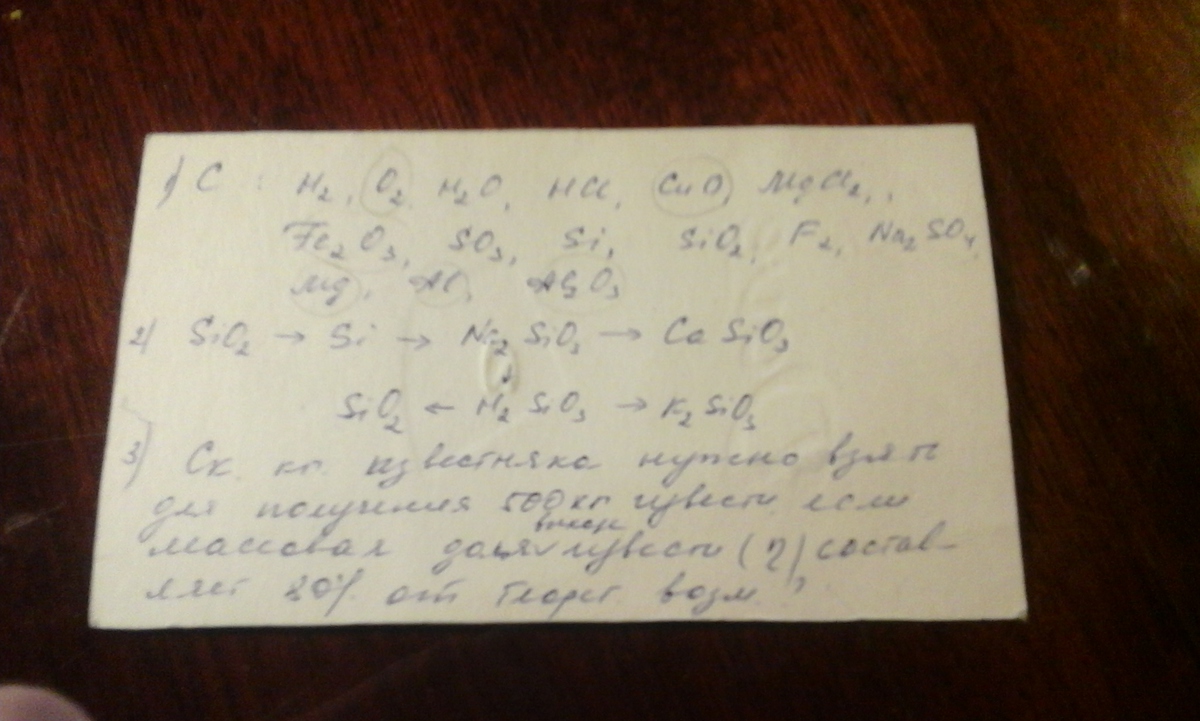 1) C : H₂, O₂, H₂O, HCl, CuO, MgCl₂,
Fe₂O₃, SO₃, Si, SiO₂, F₂, Na₂SO₄,
Mg, Al, Al₂O₃
2) SiO₂ → Si → Na₂SiO₃ → CaSiO₃
↓
SiO₂ ← H₂SiO₃ → K₂SiO₃
3) Ск. кг. известняка нужно взять
для получения 500 кг извести если
массовая доля выхода извести (η) состав-
ляет 20% от теорет. возм.?